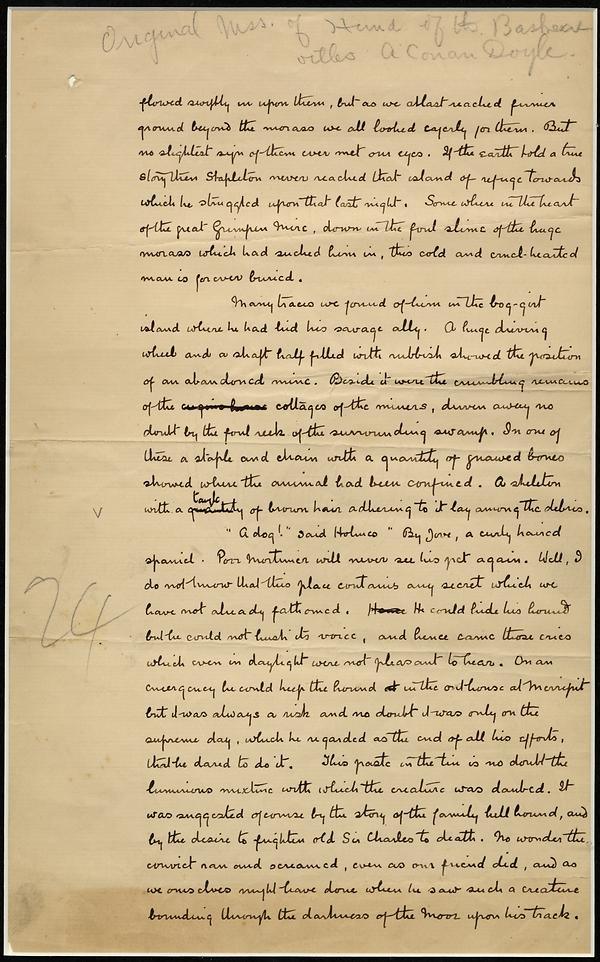 Original Mss. of Hound of the Baskervilles A Conan Doyle.
flowed swiftly in upon them, but as we at last reached firmer
ground beyond the morass we all looked eagerly for them. But
no slightest sign of them ever met our eyes. If the earth told a true
story then Stapleton never reached that island of refuge towards
which he struggled upon that last night. Some where in the heart
of the great Grimpen Mire, down in the foul slime of the huge
morass which had sucked him in, this cold and cruel-hearted
man is for ever buried.
Many traces we found of him in the bog-girt
island where he had hid his savage ally. A huge driving
wheel and a shaft half filled with rubbish showed the position
of an abandoned mine. Beside it were the crumbling remains
of the engine house cottages of the miners, driven away no
doubt by the foul reek of the surrounding swamp. In one of
these a staple and chain with a quantity of gnawed bones
showed where the animal had been confined. A skeleton
with a quantity tangle of brown hair adhering to it lay among the debris.
v
"A dog!" said Holmes "By Jove, a curly haired
spaniel. Poor Mortimer will never see his pet again. Well, I
do not know that this place contains any secret which we
24
have not already fathomed. He could hide his hound
but he could not hush its voice, and hence came those cries
which even in daylight were not pleasant to hear. On an
emergency he could keep the hound at in the outhouse at Merripit
but it was always a risk and no doubt it was only on the
supreme day, which he regarded as the end of all his efforts,
that he dared to do it. This paste in the tin is no doubt the
luminous mixture with which the creature was daubed. It
was suggested of course by the story of the family hell hound, and
by the desire to frighten old Sir Charles to death. No wonder the
convict ran and screamed, even as our friend did, and as
we ourselves might have done when he saw such a creature
bounding through the darkness of the Moor upon his track.